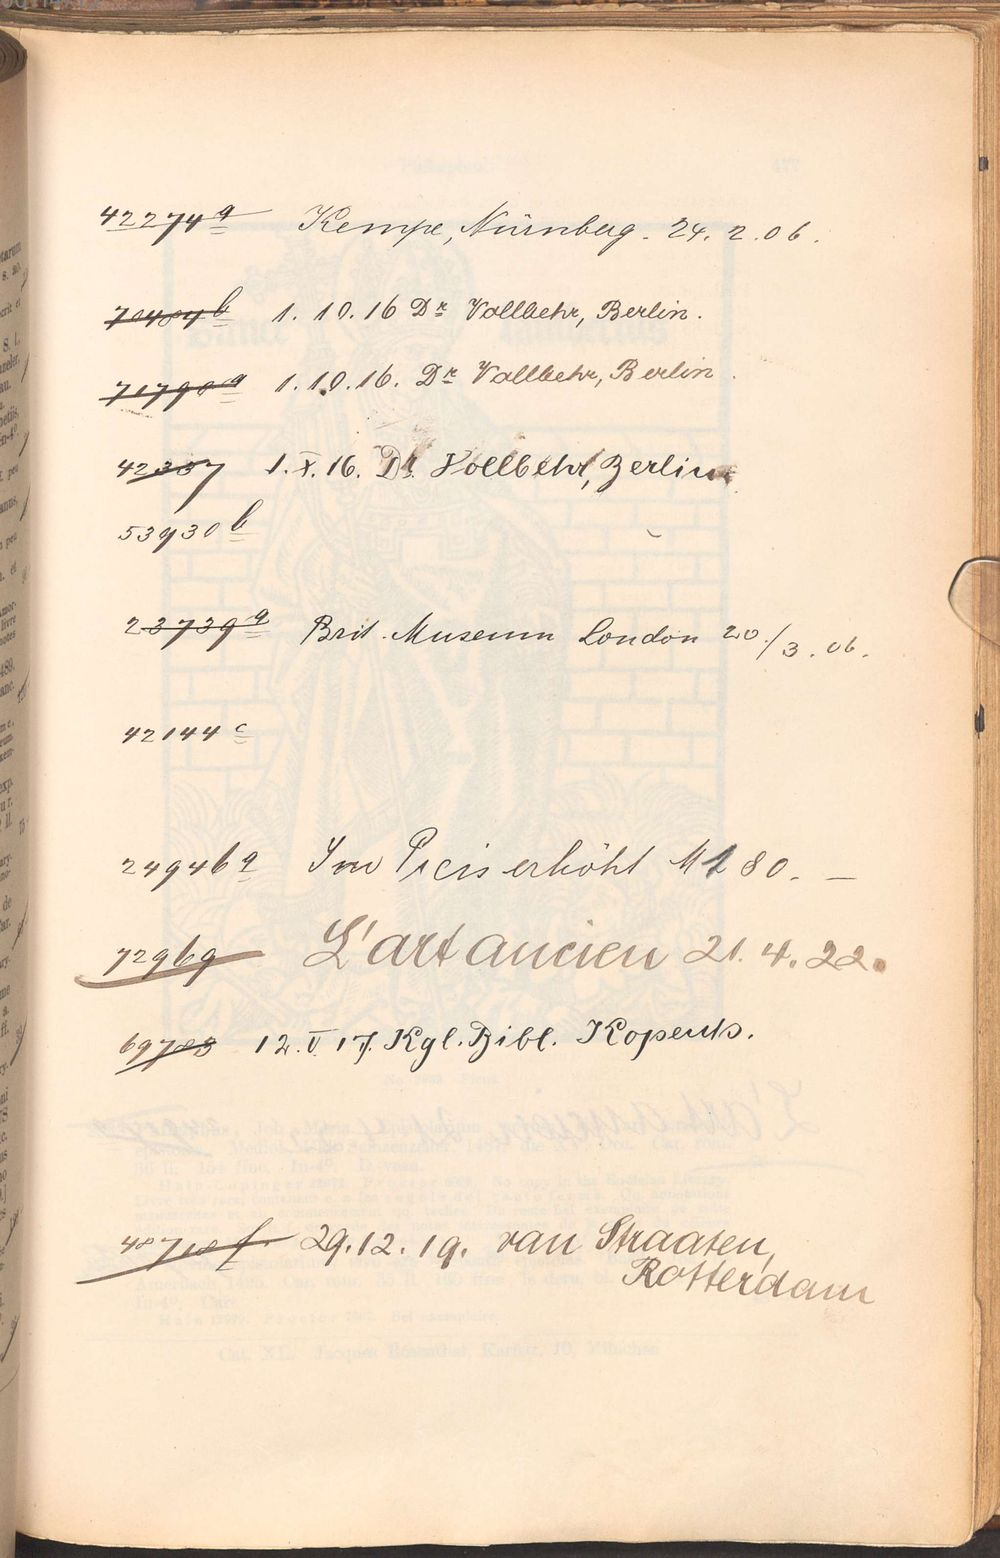 42274a Kempe, Nürnberg. 24. 2. 06.
70484b 1. 10. 16 Dr Vollbehr, Berlin.
71790a 1. 10. 16. Dr Vollbehr, Berlin.
42307 1. X. 16. Dr. Vollbehr, Berlin
53930b
23739a Brit. Museum London 20./3. 06.
42144c
24946a Im Preis erhöht M 180. —
72969 L'art ancien 21. 4. 22.
69783 12. V. 17. Kgl. Bibl. Kopenh.
48718f 29. 12. 19. van Straaten,
Rotterdam